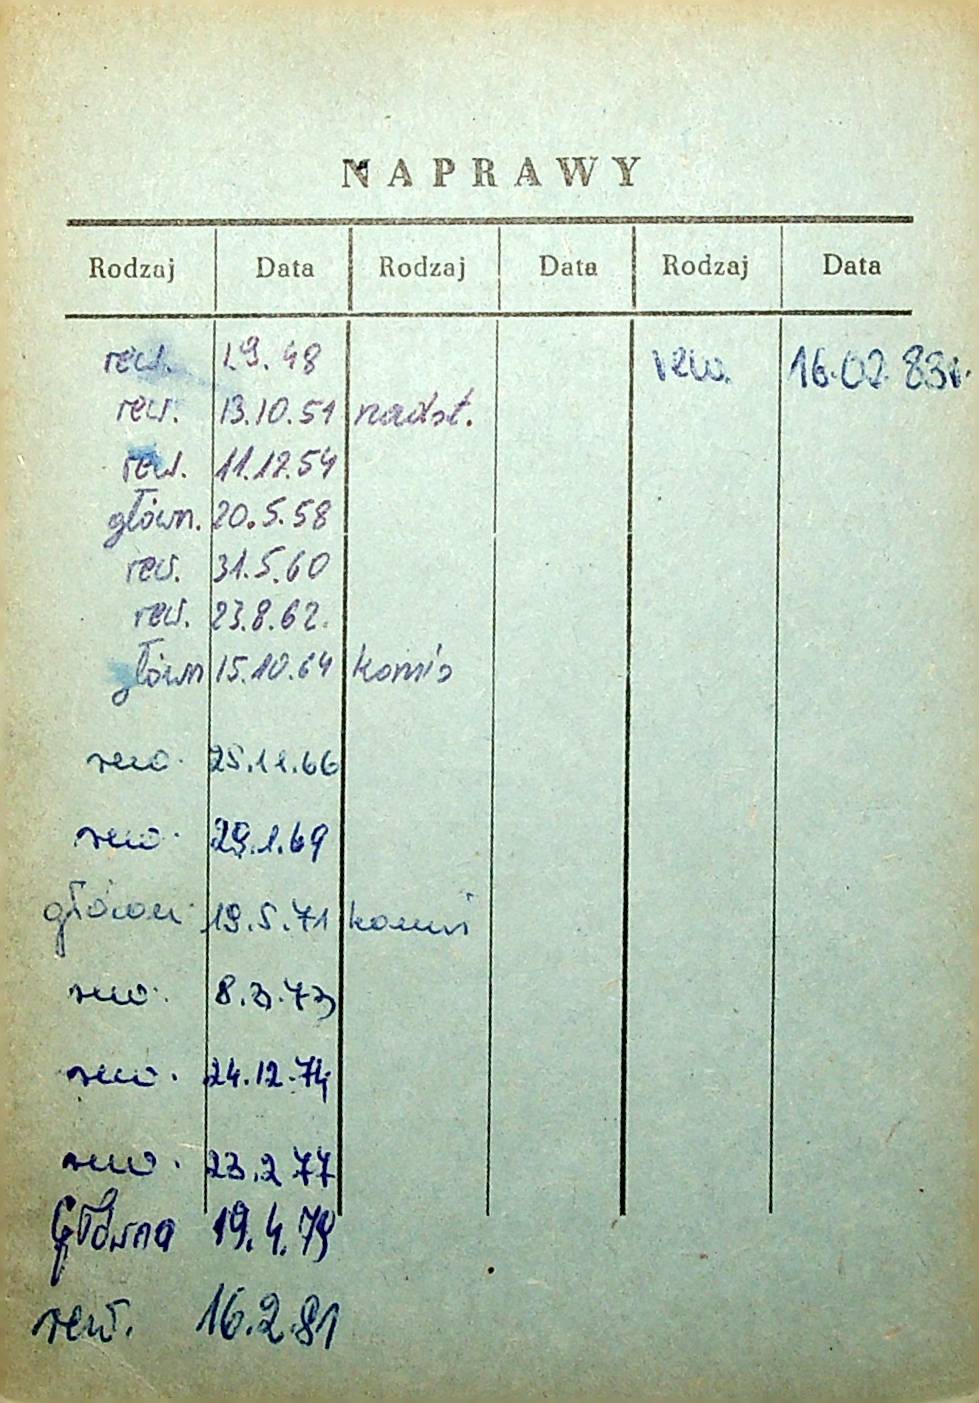 NAPRAWY
Rodzaj Data Rodzaj Data Rodzaj Data
rew. 1.9.48 rew. 16.02.83r.
rew. 13.10.51 nadst.
rew. 11.12.54
główn. 20.5.58
rew. 31.5.60
rew. 23.8.62.
główn 15.10.64 komis
rew. 25.11.66
rew. 29.1.69
główn. 19.5.71 komis
rew. 8.3.73
rew. 24.12.74
rew. 23.2.77
Główna 19.4.79
rew. 16.2.81